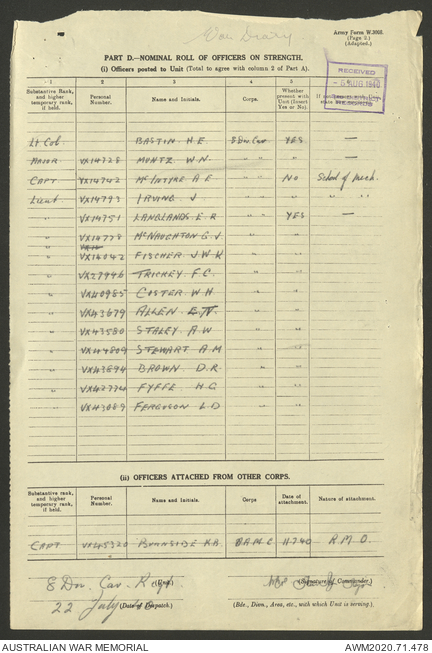 War Diary
Army Form W.3008.
(Page 2.)
(Adapted.)
PART D.—NOMINAL ROLL OF OFFICERS ON STRENGTH.
(i) Officers posted to Unit (Total to agree with column 2 of Part A).
RECEIVED
AUG 1940
RECORDS
1 2 3 4 5
Substantive Rank, and higher temporary rank, if held. Personal Number. Name and Initials. Corps. Whether present with Unit (Insert Yes or No).
Lt Col BASTIN H.E. 8 Div. Cav YES —
MAJOR VX14728 MONTZ W.N. " " " —
CAPT VX14742 McINTYRE A E " " NO School of Mech.
LIEUT VX14793 IRVING J " " " " " "
" VX14751 LANGLANDS E R " " YES —
" VX14778 McNAUGHTON G J " " "
" VX14042 FISCHER J.W.K " " "
" VX27946 TRICKEY F.C. " " "
" VX40985 COSTER W H " " "
" VX43679 ALLEN E.N " " "
" VX43580 STALEY A W " " "
" VX44809 STEWART A M " " "
" VX43894 BROWN D.R. " " "
" VX42774 FYFFE H G " " "
" VX43089 FERGUSON L D " " "
(ii) OFFICERS ATTACHED FROM OTHER CORPS.
Substantive rank, and higher temporary rank, if held. Personal Number. Name and Initials. Corps Date of attachment. Nature of attachment.
CAPT VX45320 BURNSIDE K.B. AAMC 11.7.40 R M O.
8 Div. Cav. Regt (Unit)
(Signature of Commander.)
22 July 40 (Date of Despatch.)
(Bde., Divn., Area, etc., with which Unit is serving).
AUSTRALIAN WAR MEMORIAL AWM2020.71.478